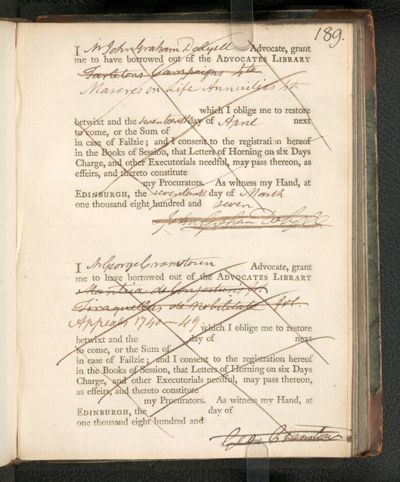 189.
I Mr John Graham Dalyell Advocate, grant
me to have borrowed out of the ADVOCATES LIBRARY
Tarletons Campaigns 4to
Maseres on Life Annuities 4o
which I oblige me to restore
betwixt and the seventeenth day of April next
to come, or the Sum of
in case of Failzie; and I consent to the registration hereof
in the Books of Session, that Letters of Horning on six Days
Charge, and other Executorials needful, may pass thereon, as
effeirs, and thereto constitute
my Procurators. As witness my Hand, at
EDINBURGH, the seventeenth day of March
one thousand eight hundred and seven
John Graham Dalyell
I Mr George Cranstoun Advocate, grant
me to have borrowed out of the ADVOCATES LIBRARY
de
Tiraquellus de Nobilitate
Appeals 1740-49
which I oblige me to restore
betwixt and the day of next
to come, or the Sum of
in case of Failzie; and I consent to the registration hereof
in the Books of Session, that Letters of Horning on six Days
Charge, and other Executorials needful, may pass thereon,
as effeirs, and thereto constitute
my Procurators. As witness my Hand, at
EDINBURGH, the day of
one thousand eight hundred and
Geo. Cranstoun